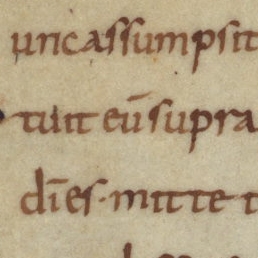 unc assumpsit
tuit eū supra
dn̄es · mitte t